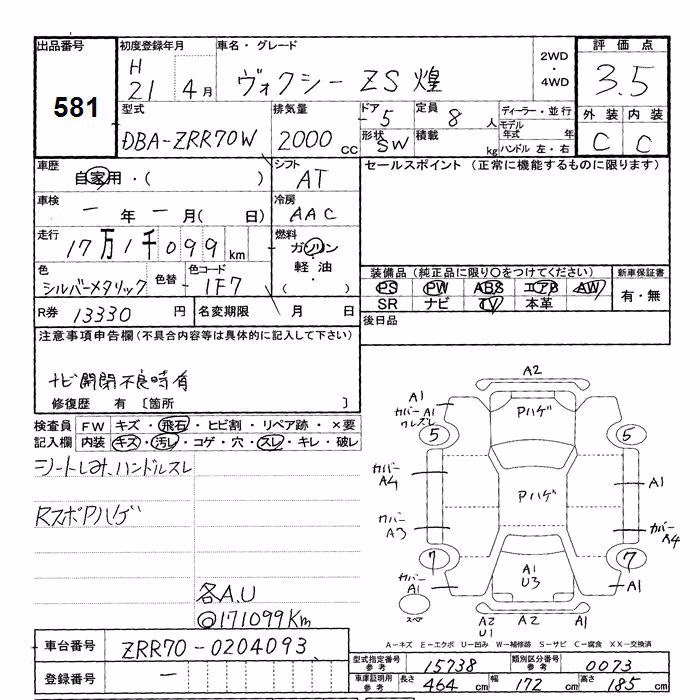 出品番号 581
初度登録年月 H 21 4月
車名・グレード ヴォクシー ZS 煌
2WD・4WD
評価点 3.5
型式 DBA-ZRR70W
排気量 2000 CC
ドア 5
形状 SW
定員 8人
積載 kg
ディーラー・並行
モデル年式 年
ハンドル 左・右
外装 内装
C C
車歴 自家用・( )
シフト AT
セールスポイント (正常に機能するものに限ります)
車検 ー年ー月( 日)
冷房 AAC
走行 17万1千099km
燃料 ガソリン・軽油・( )
色 シルバーメタリック 色替 色コード 1F7
装備品(純正品に限り○をつけてください) 新車保証書
PS PW ABS エアB AW 有・無
SR ナビ TV 本革
R券 13330円 名変期限 月 日
後日品
注意事項申告欄(不具合内容等は具体的に記入して下さい)
ナビ開閉不良時有
修復歴 有 〔箇所 〕
検査員記入欄
FW キズ・飛石・ヒビ割・リペア跡・×要
内装 キズ・汚レ・コゲ・穴・スレ・キレ・破レ
シートしみ、ハンドルスレ
RスポPハゲ
各A.U
◎171099Km
A2
A1
カバーA1
Pハゲ
5 5
カバー A4
Pハゲ
A1
カバー A3
カバー A4
7 7
カバー A1
A1 U3
A1
スペア
A2 U1
A2
A1
A−キズ E−エクボ U−凹み W−補修跡 S−サビ C−腐食 XX−交換済
車台番号 ZRR70-0204093
登録番号 ー
型式指定番号 参考 15738 類別区分番号 参考 0073
車庫証明用 参考 長さ 464cm 幅 172cm 高さ 185cm